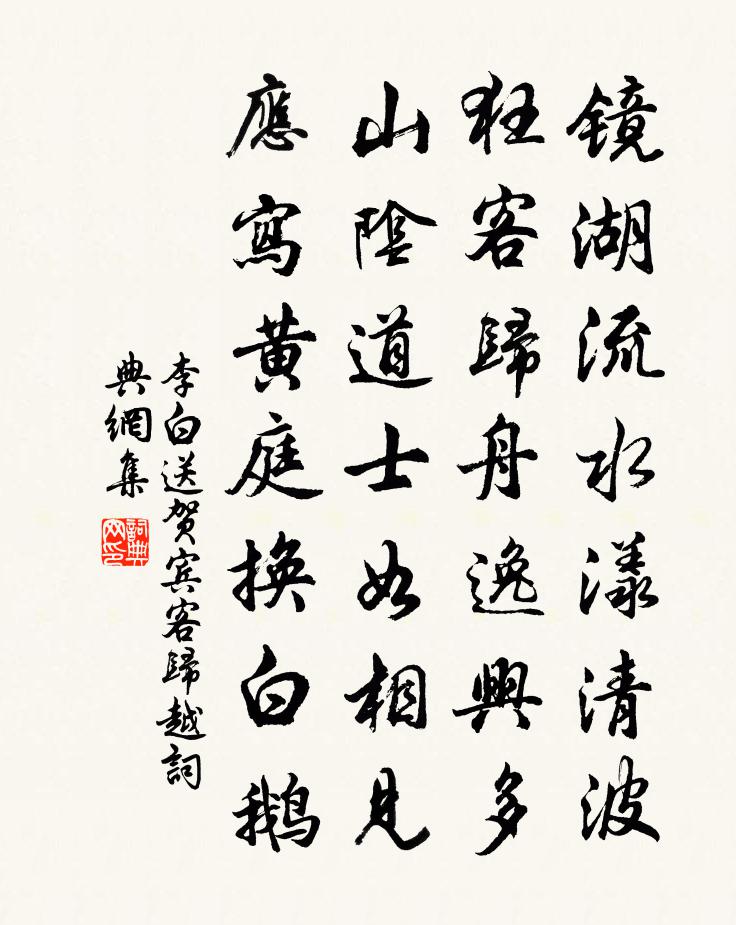 镜湖流水漾清波
狂客歸舟逸興多
山陰道士如相見
應寫黄庭換白鹅
李白送贺宾客歸越詞
典網集
詞典網印